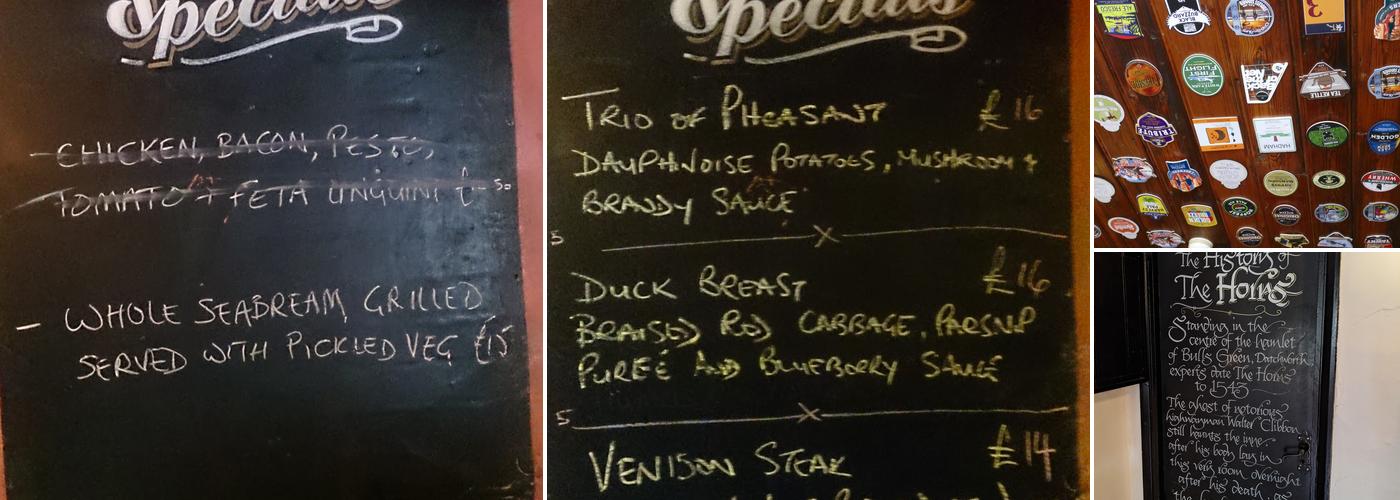 Specials
- CHICKEN, BACON, PESTO,
TOMATO + FETA LINGUINI £-50
- WHOLE SEABREAM, GRILLED
SERVED WITH PICKLED VEG £15
Specials
TRIO OF PHEASANT £16
DAUPHNOISE POTATOES, MUSHROOM +
BRANDY SAUCE
5
DUCK BREAST £16
BRAISED RED CABBAGE, PARSNIP
PUREÉ AND BLUEBERRY SAUCE
5
VENISON STEAK £14
ALE FRESCO
BLACK BUZZARD
FIRST FLIGHT
Back of the Net
TEA KETTLE
TRIBUTE
HADHAM
GOLDEN
WHERRY
ORIGINAL
The History of
The Horns
Standing in the
centre of the hamlet
of Bulls Green, Datchworth,
experts date The Horns
to 1543
The ghost of notorious
highwayman Walter Clibbon
still haunts the inne
after his body lay in
this very room overnight
after his death, as